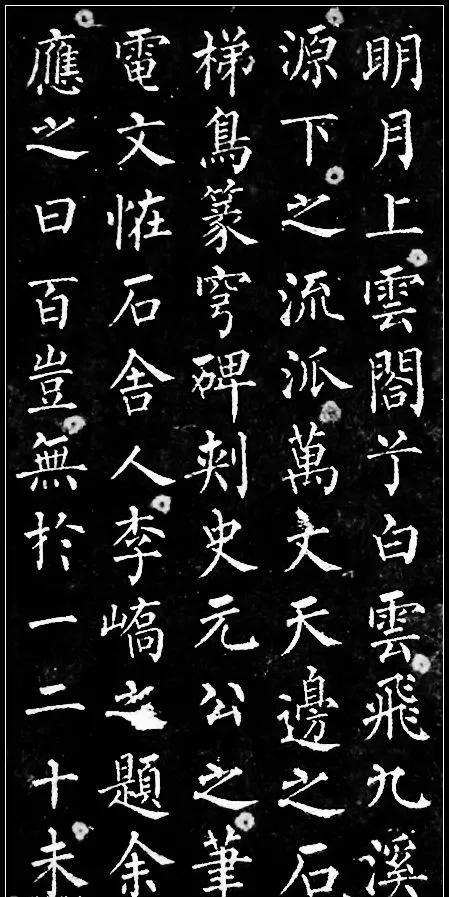 明月上雲閣兮白雲飛九溪
源下之流派萬丈天邊之石
梯鳥篆穹碑刾史元公之筆
電文恠石舍人李嶠之題余
應之曰百豈無於一二十未